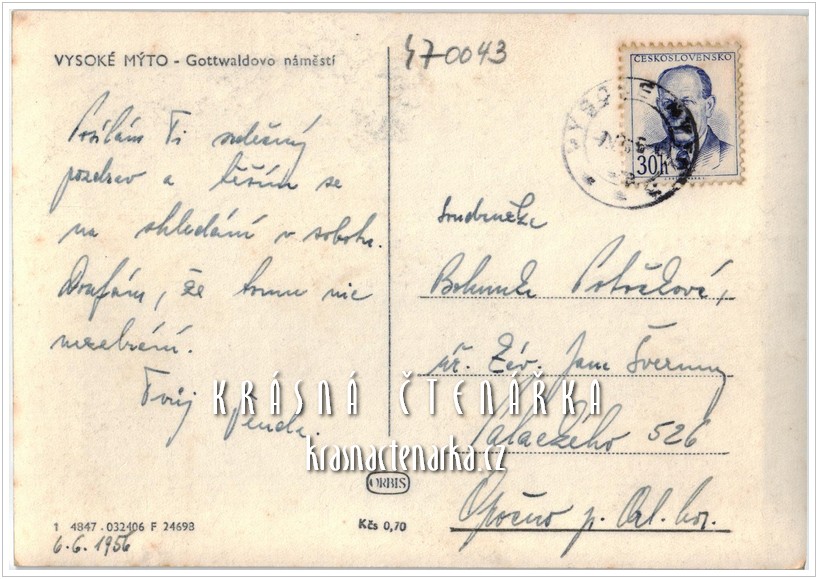 VYSOKÉ MÝTO - Gottwaldovo náměstí
470043
ČESKOSLOVENSKO
30h
Posílám Ti srdečný
pozdrav a těším se
na shledání v sobotu.
Doufám, že tomu nic
nezabrání.
Tvůj Jenda.
Soudružka
Bohunka Potůčková,
Záv. Jana Švermy
Palackého 526
Opočno p. Orl. hor.
KRÁSNÁ ČTENÁŘKA
krasnactenarka.cz
ORBIS
1 4847 . 032106 F 24698
Kčs 0,70
6.6.1956